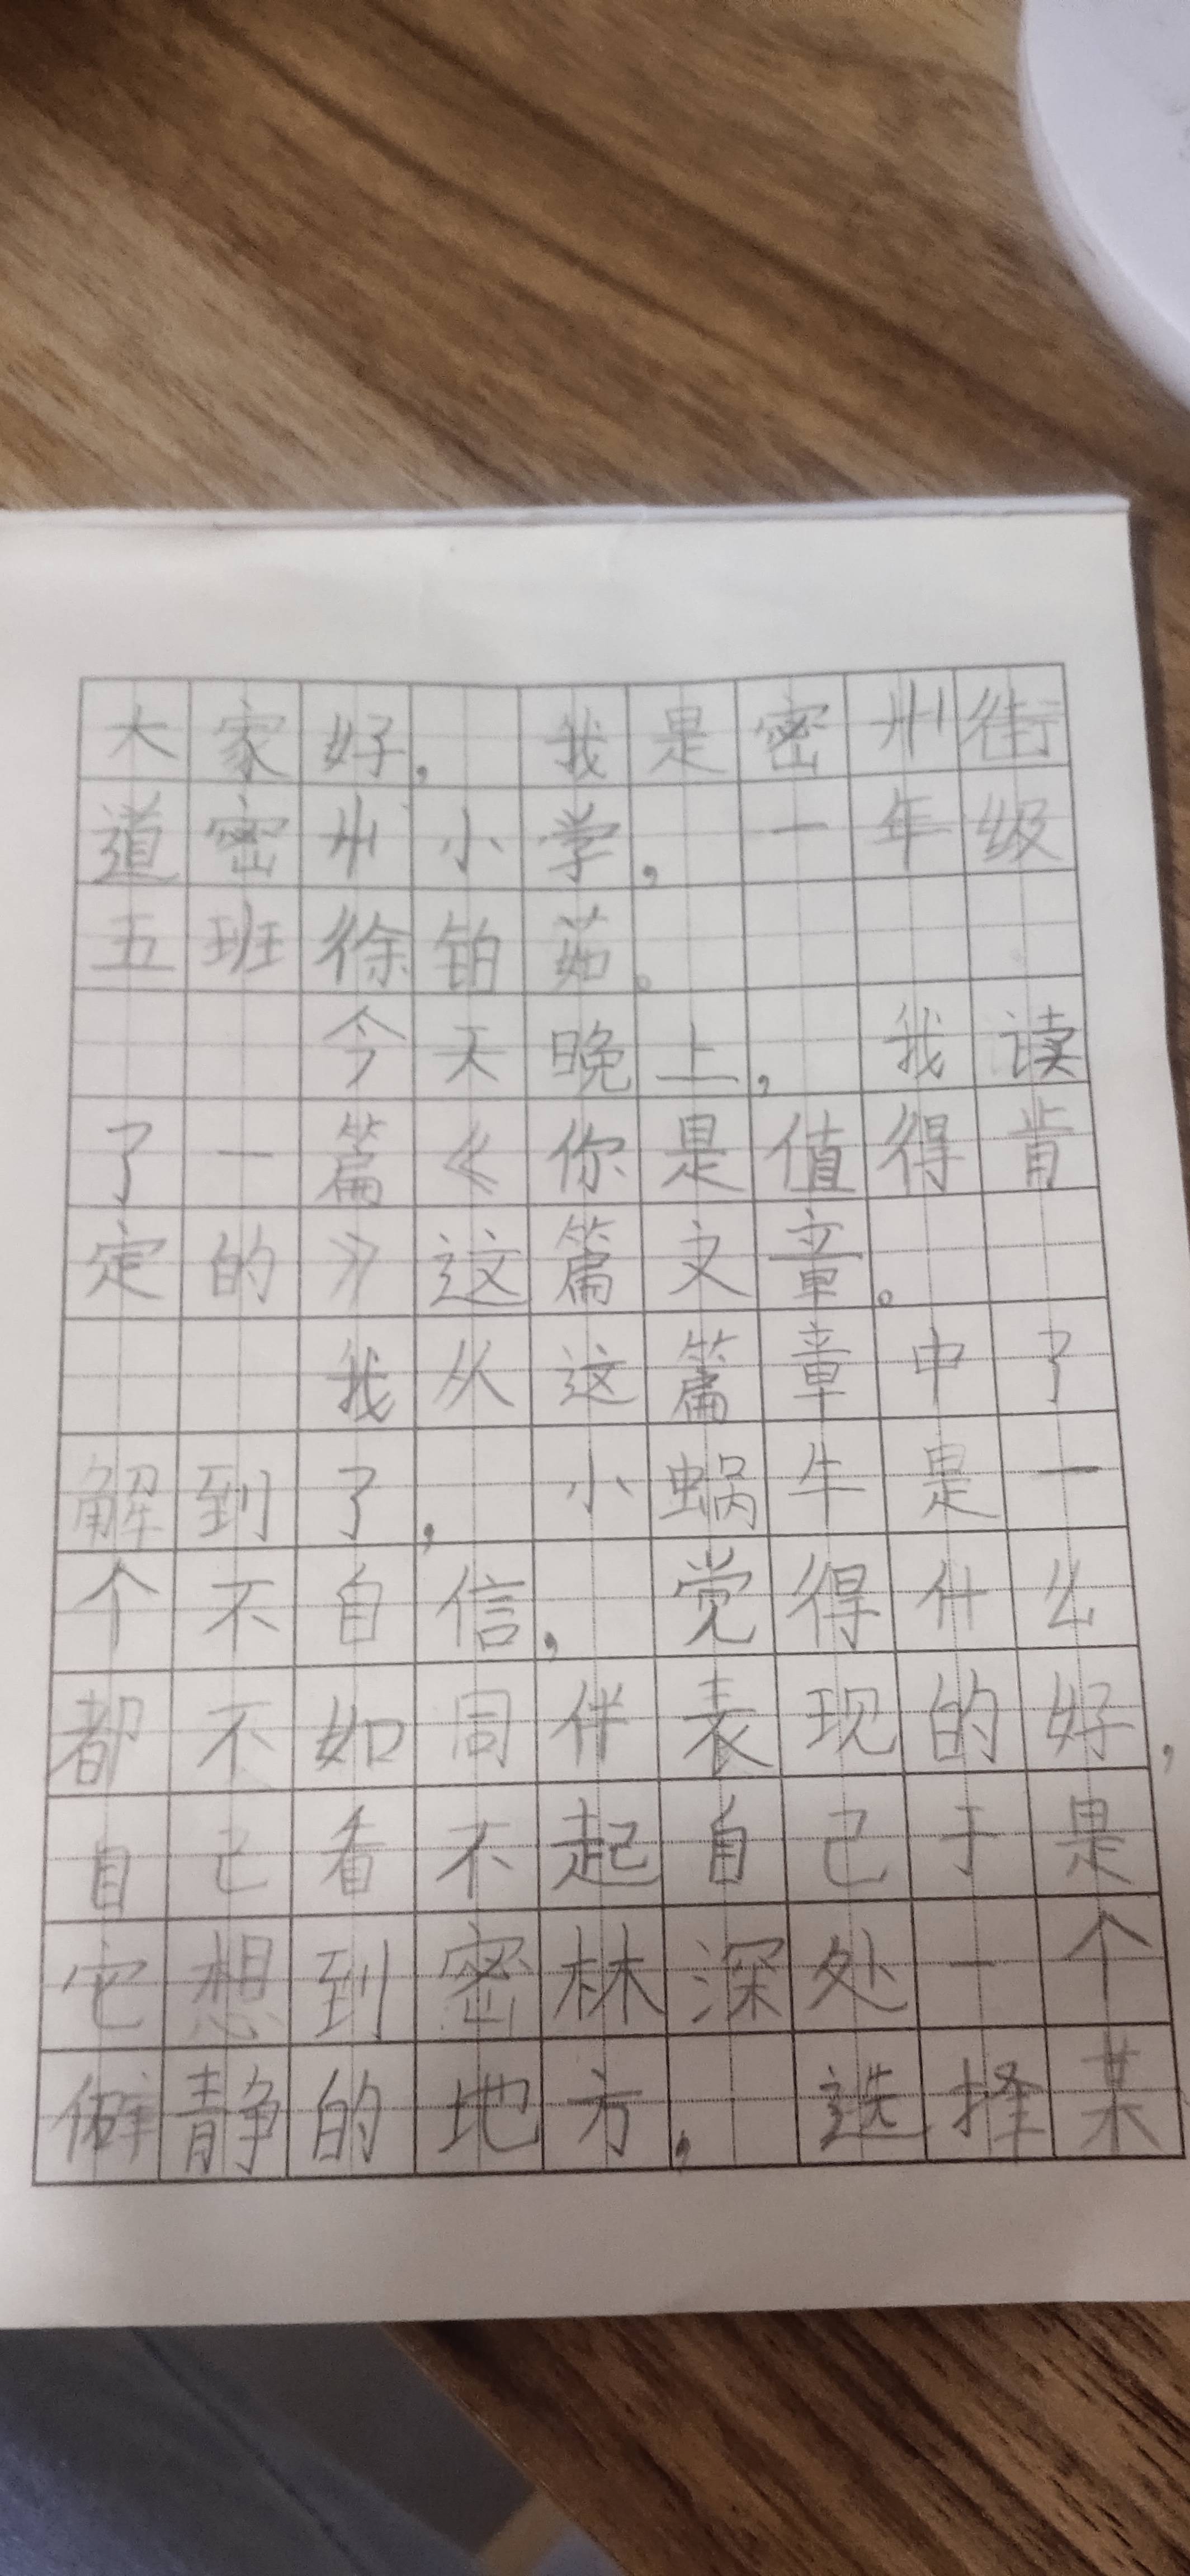 大家好，我是密州街
道密州小学，一年级
五班徐铂茹。
今天晚上，我读
了一篇《你是值得肯
定的》这篇文章。
我从这篇章中了
解到了，小蜗牛是一
个不自信，觉得什么
都不如同伴表现的好，
自己看不起自己于是
它想到密林深处一个
僻静的地方，选择某